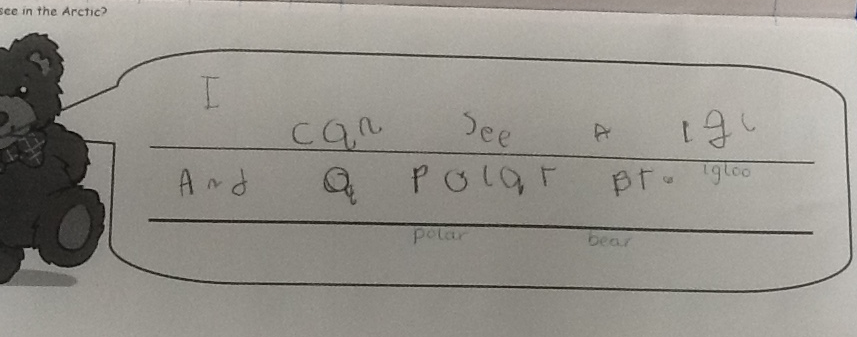 see in the Arctic?
I
can See A Igl
igloo
And a Polar Br.
polar bear